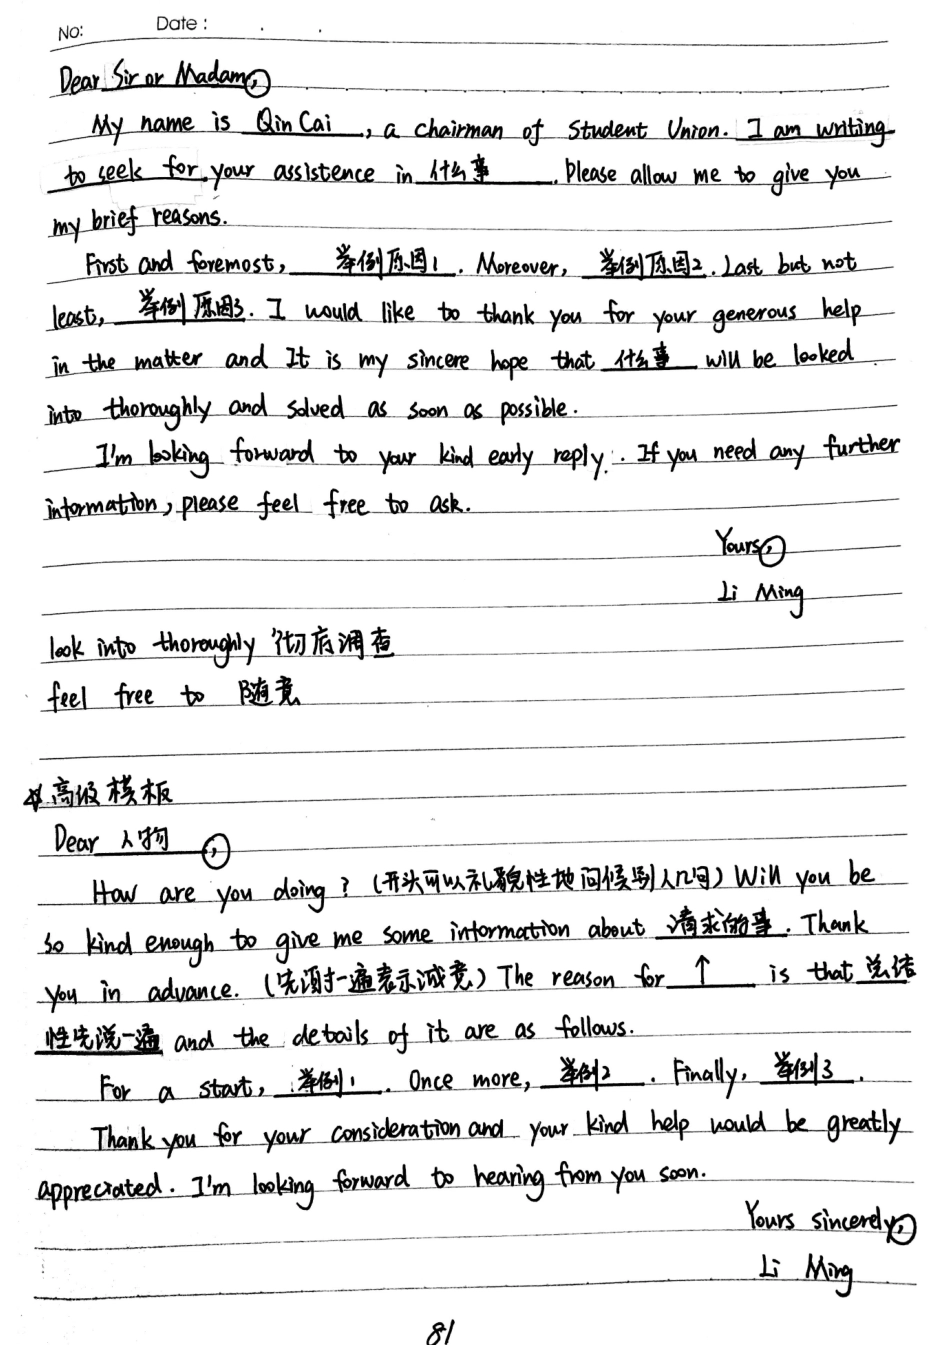 No: Date :
Dear Sir or Madam,
My name is Qin Cai , a chairman of Student Union. I am writing
to seek for your assistence in 什么事 . Please allow me to give you
my brief reasons.
First and foremost, 举例原因1 . Moreover, 举例原因2 . Last but not
least, 举例原因3 . I would like to thank you for your generous help
in the matter and It is my sincere hope that 什么事 will be looked
into thoroughly and solved as soon as possible.
I'm looking forward to your kind early reply. If you need any further
information, please feel free to ask.
Yours,
Li Ming
look into thoroughly 彻底调查
feel free to 随意
☆高级模板
Dear 人物 ,
How are you doing ? (开头可以礼貌性地问候别人几句) Will you be
so kind enough to give me some information about 请求的事 . Thank
you in advance. (先谢一遍表示诚意) The reason for ↑ is that 总结
性先说一遍 and the details of it are as follows.
For a start, 举例1 . Once more, 举例2 . Finally, 举例3 .
Thank you for your consideration and your kind help would be greatly
appreciated. I'm looking forward to hearing from you soon.
Yours sincerely,
Li Ming
81